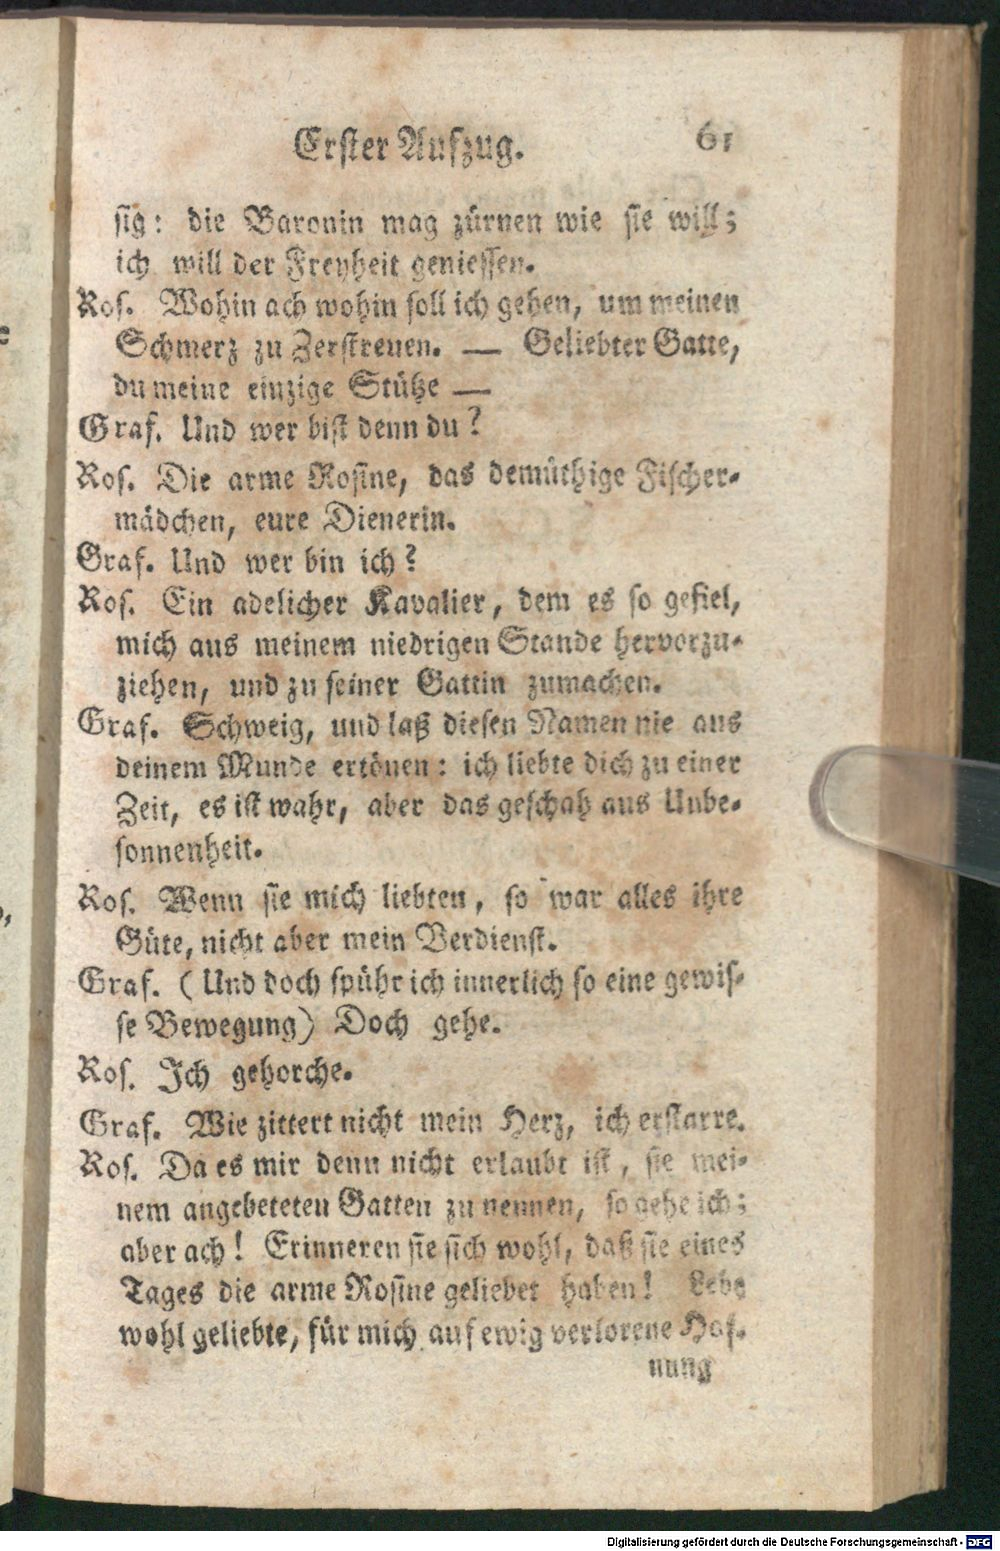 Erster Aufzug. 61
sig: die Baronin mag zürnen wie sie will;
ich will der Freyheit geniessen.
Ros. Wohin ach wohin soll ich gehen, um meinen
Schmerz zu Zerstreuen. — Geliebter Gatte,
du meine einzige Stütze —
Graf. Und wer bist denn du?
Ros. Die arme Rosine, das demüthige Fischer-
mädchen, eure Dienerin.
Graf. Und wer bin ich?
Ros. Ein adelicher Kavalier, dem es so gefiel,
mich aus meinem niedrigen Stande hervorzu-
ziehen, und zu seiner Gattin zumachen.
Graf. Schweig, und laß diesen Namen nie aus
deinem Munde ertönen: ich liebte dich zu einer
Zeit, es ist wahr, aber das geschah aus Unbe-
sonnenheit.
Ros. Wenn sie mich liebten, so war alles ihre
Güte, nicht aber mein Verdienst.
Graf. (Und doch spühr ich innerlich so eine gewis-
se Bewegung) Doch gehe.
Ros. Ich gehorche.
Graf. Wie zittert nicht mein Herz, ich erstarre.
Ros. Da es mir denn nicht erlaubt ist, sie mei-
nem angebeteten Gatten zu nennen, so gehe ich;
aber ach! Erinneren sie sich wohl, daß sie eines
Tages die arme Rosine geliebet haben! Lebe
wohl geliebte, für mich auf ewig verlorene Hof-
nung
Digitalisierung gefördert durch die Deutsche Forschungsgemeinschaft - DFG